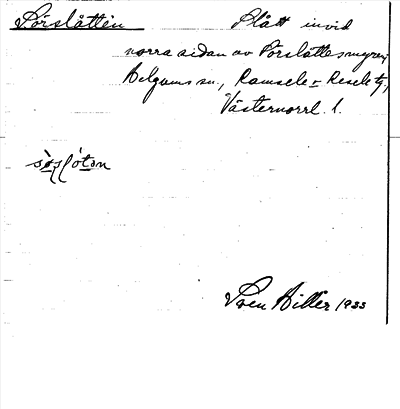 Sörslåtten Slått invid
norra sidan av Sörslåttesmyren,
Helgums sn., Ramsele o Resele tg,
Västernorrl. l.
Sven Hiller 1933